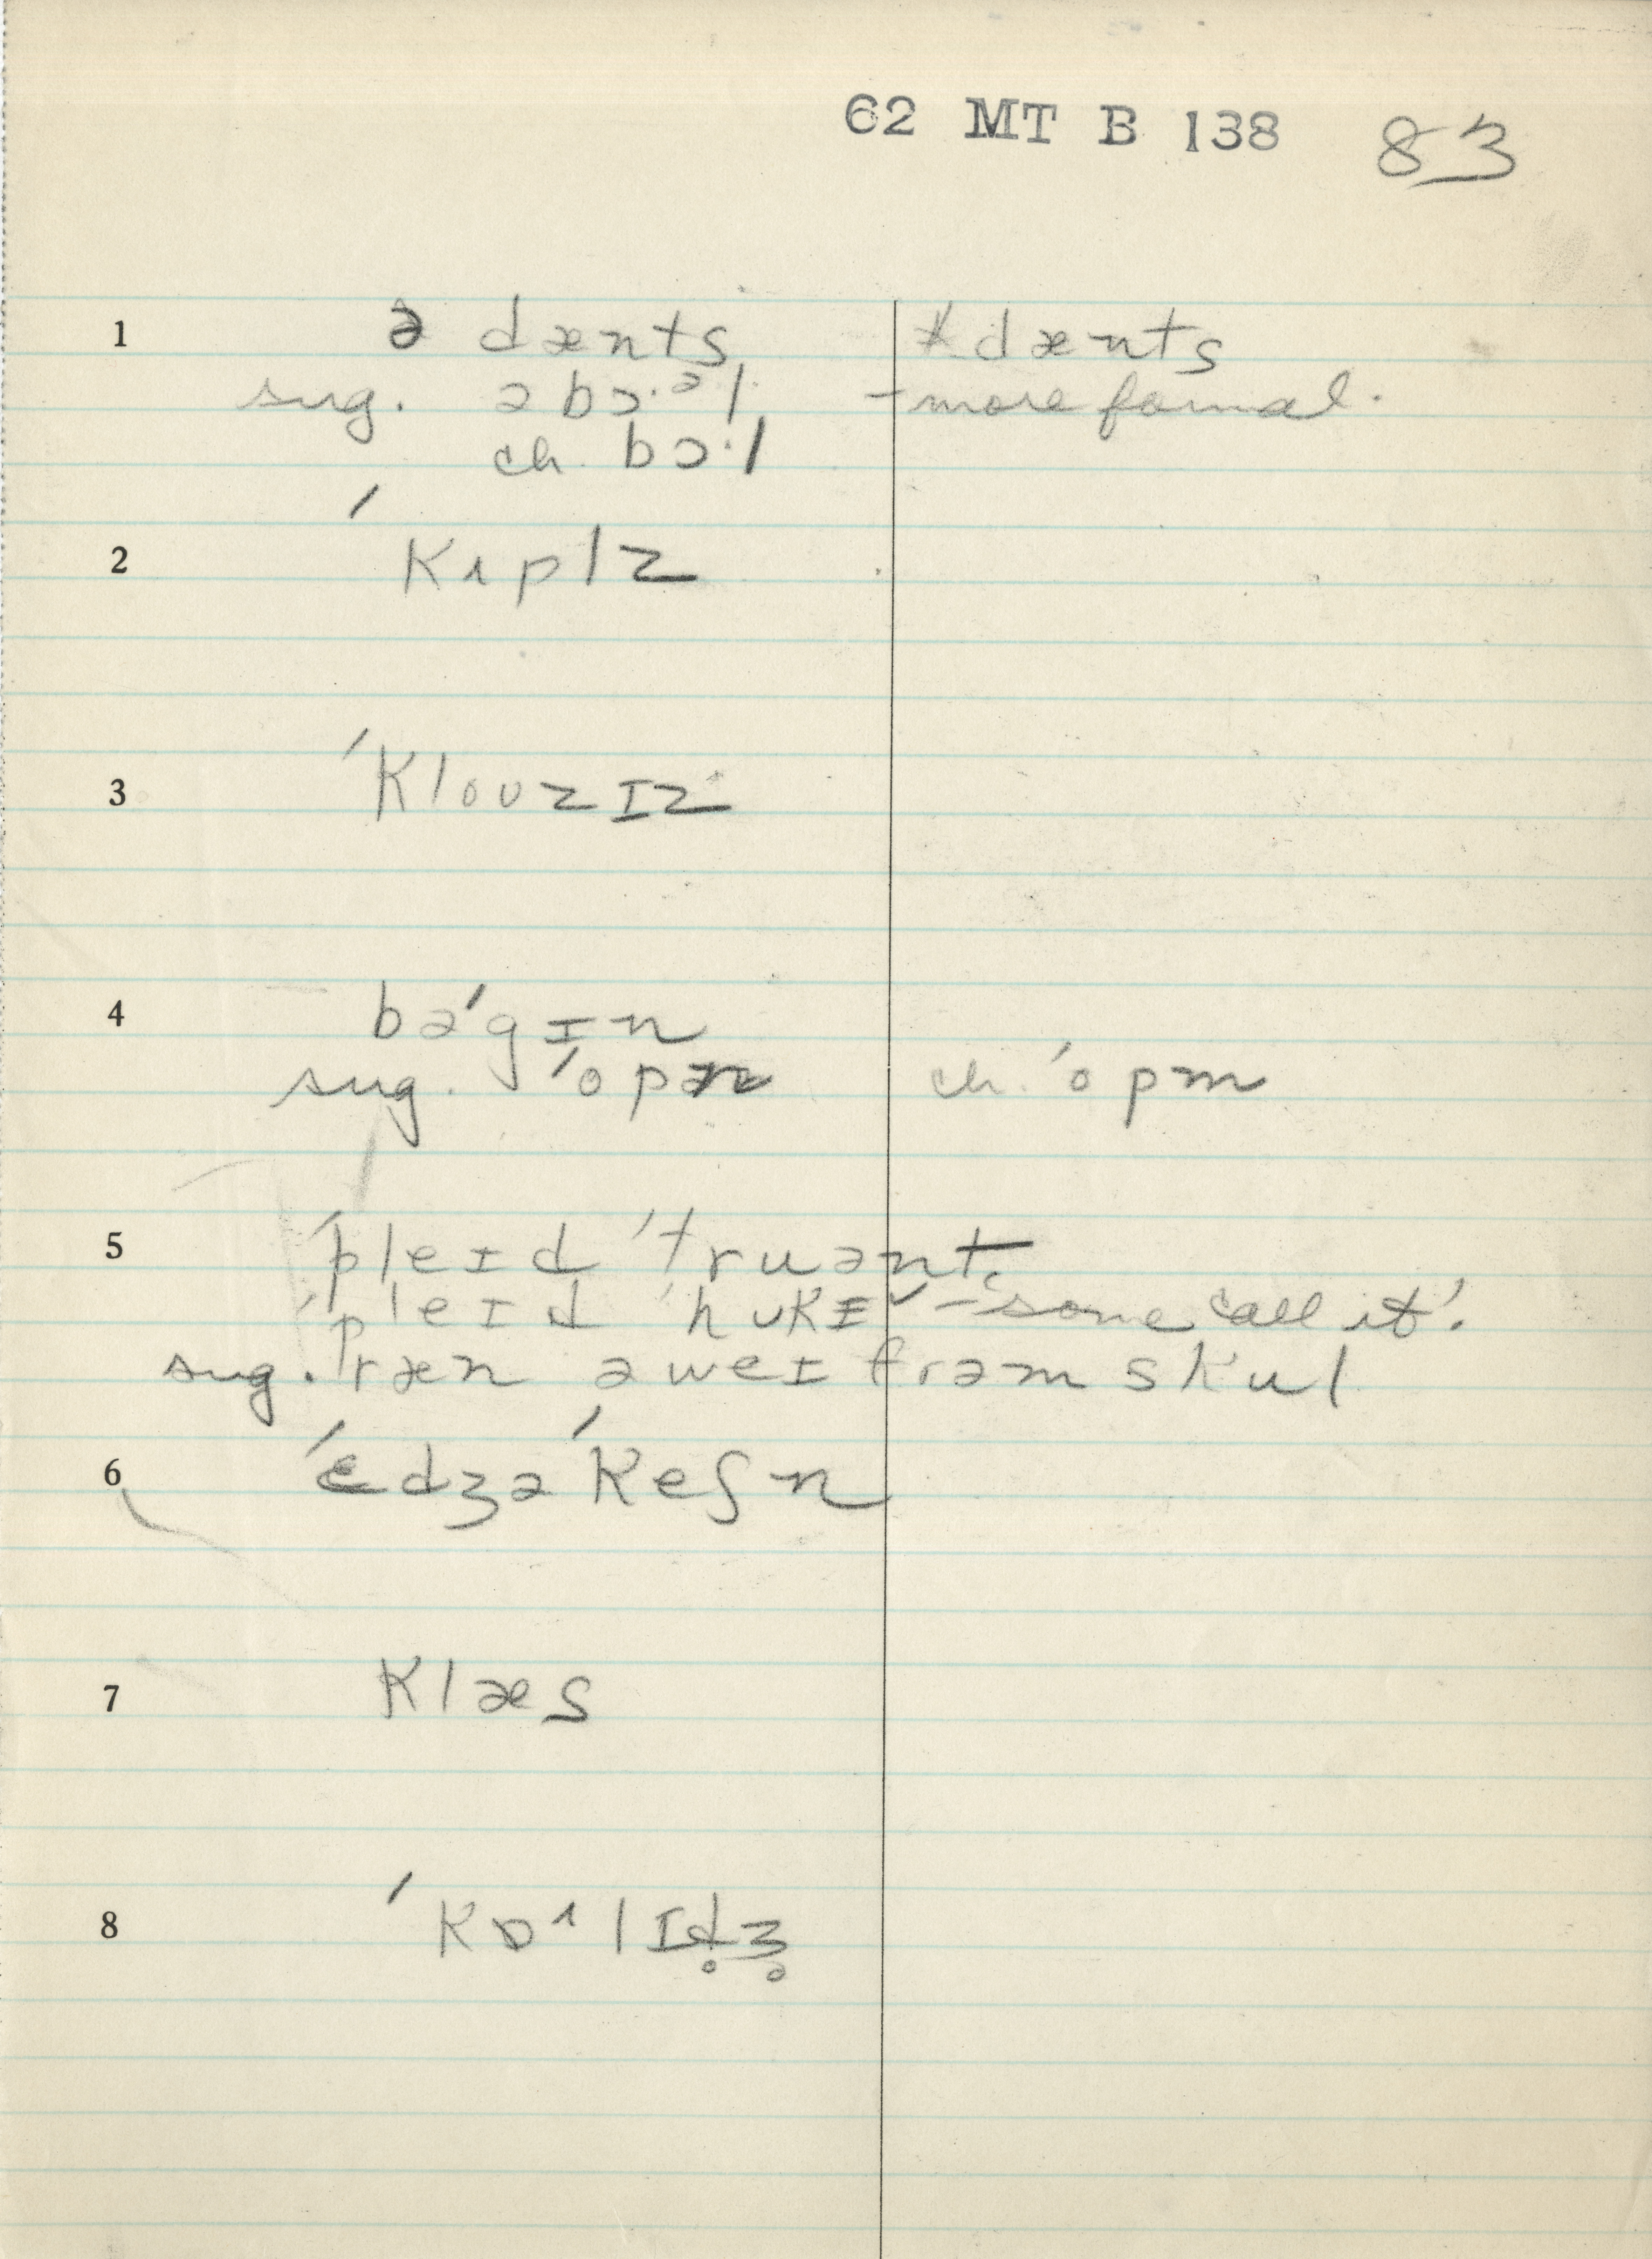 62 MT B 138 83
1 ə dænts * dænts
sug. ə bɔ·ᵊl. – more formal.
ch. bɔ·l
2 ˊkʌplz
3 ˊkloʊzɪz
4 bəˊgɪn
sug. ˊopən ch. ˊopm
5 ˊpleɪd ˊtruənt
ˊpleɪd ˊhʊkɪ – 'some call it'.
sug. ˊræn əweɪ frəm skul
6 ˊɛdʒəˊkeʃn
7 klæs
8 ˊkɒ^lɪd̥ʒ̥